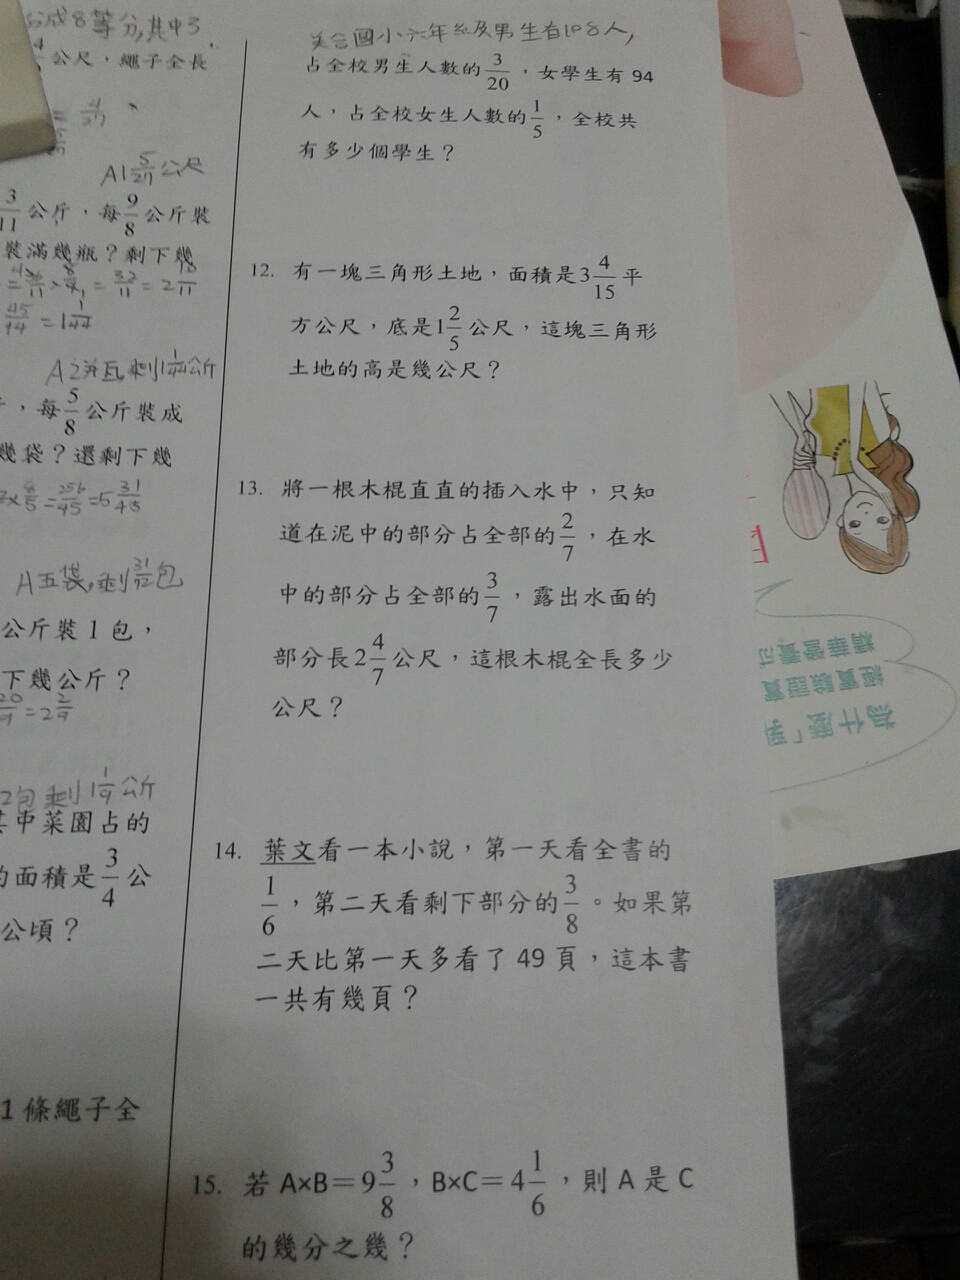 分成8等分,其中3
公尺,繩子全長
A1 5/27 公尺
3/11 公斤,每 9/8 公斤裝
裝滿幾瓶?剩下幾
= 32/11 = 2 10/11
45/44 = 1 1/44
,每 5/8 公斤裝成
幾袋?還剩下幾
×8/5 = 256/45 = 5 31/45
A五袋,剩 31/72 包
公斤裝1包,
下幾公斤?
20/9 = 2 2/9
2包剩 1 1/9 公斤
其中菜園占的
的面積是 3/4 公
公頃?
1條繩子全
美合國小六年級男生有108人,
占全校男生人數的 3/20 ,女學生有94
人,占全校女生人數的 1/5 ,全校共
有多少個學生?
12. 有一塊三角形土地,面積是3 4/15 平
方公尺,底是1 2/5 公尺,這塊三角形
土地的高是幾公尺?
13. 將一根木棍直直的插入水中,只知
道在泥中的部分占全部的 2/7 ,在水
中的部分占全部的 3/7 ,露出水面的
部分長2 4/7 公尺,這根木棍全長多少
公尺?
14. 葉文看一本小說,第一天看全書的
1/6 ,第二天看剩下部分的 3/8 。如果第
二天比第一天多看了49頁,這本書
一共有幾頁?
15. 若A×B=9 3/8 ,B×C=4 1/6 ,則A是C
的幾分之幾?
為什麼「
經實驗證實
精華營養成